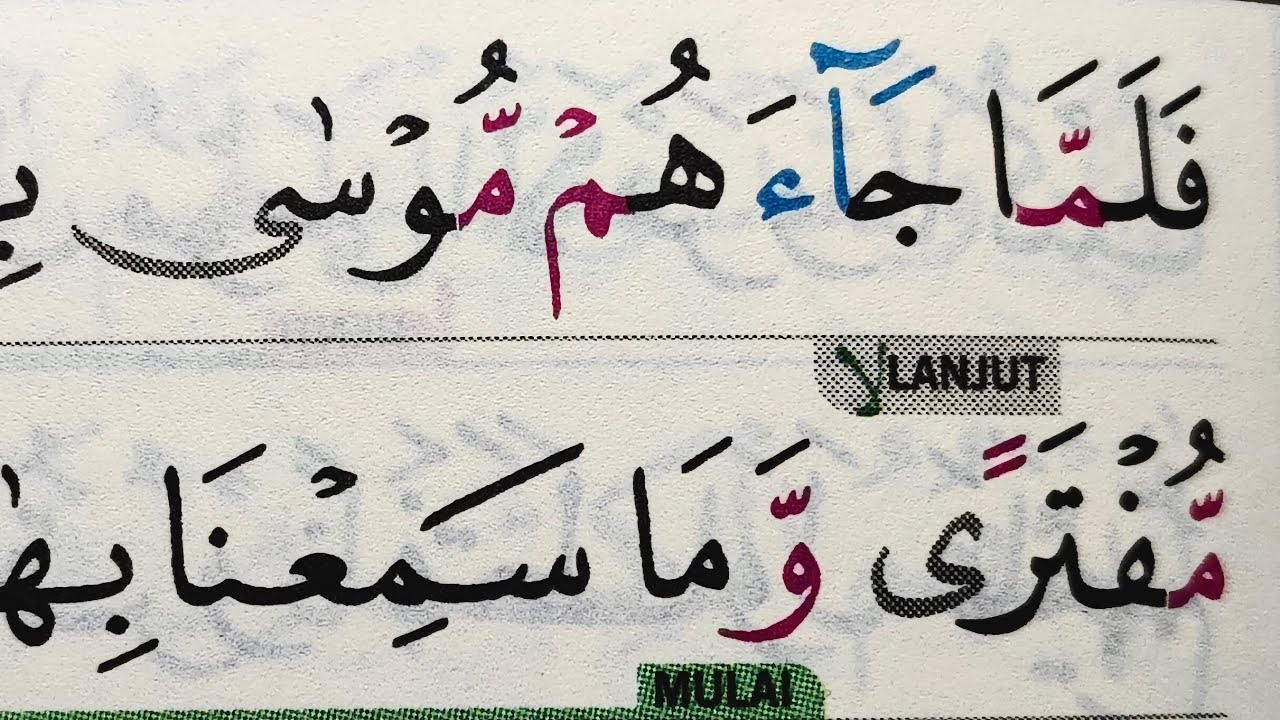 فَلَمَّا جَآءَهُمْ مُّوْسٰى بِ
لا LANJUT
مُّفْتَرًى وَّمَا سَمِعْنَا بِهٰ
MULAI